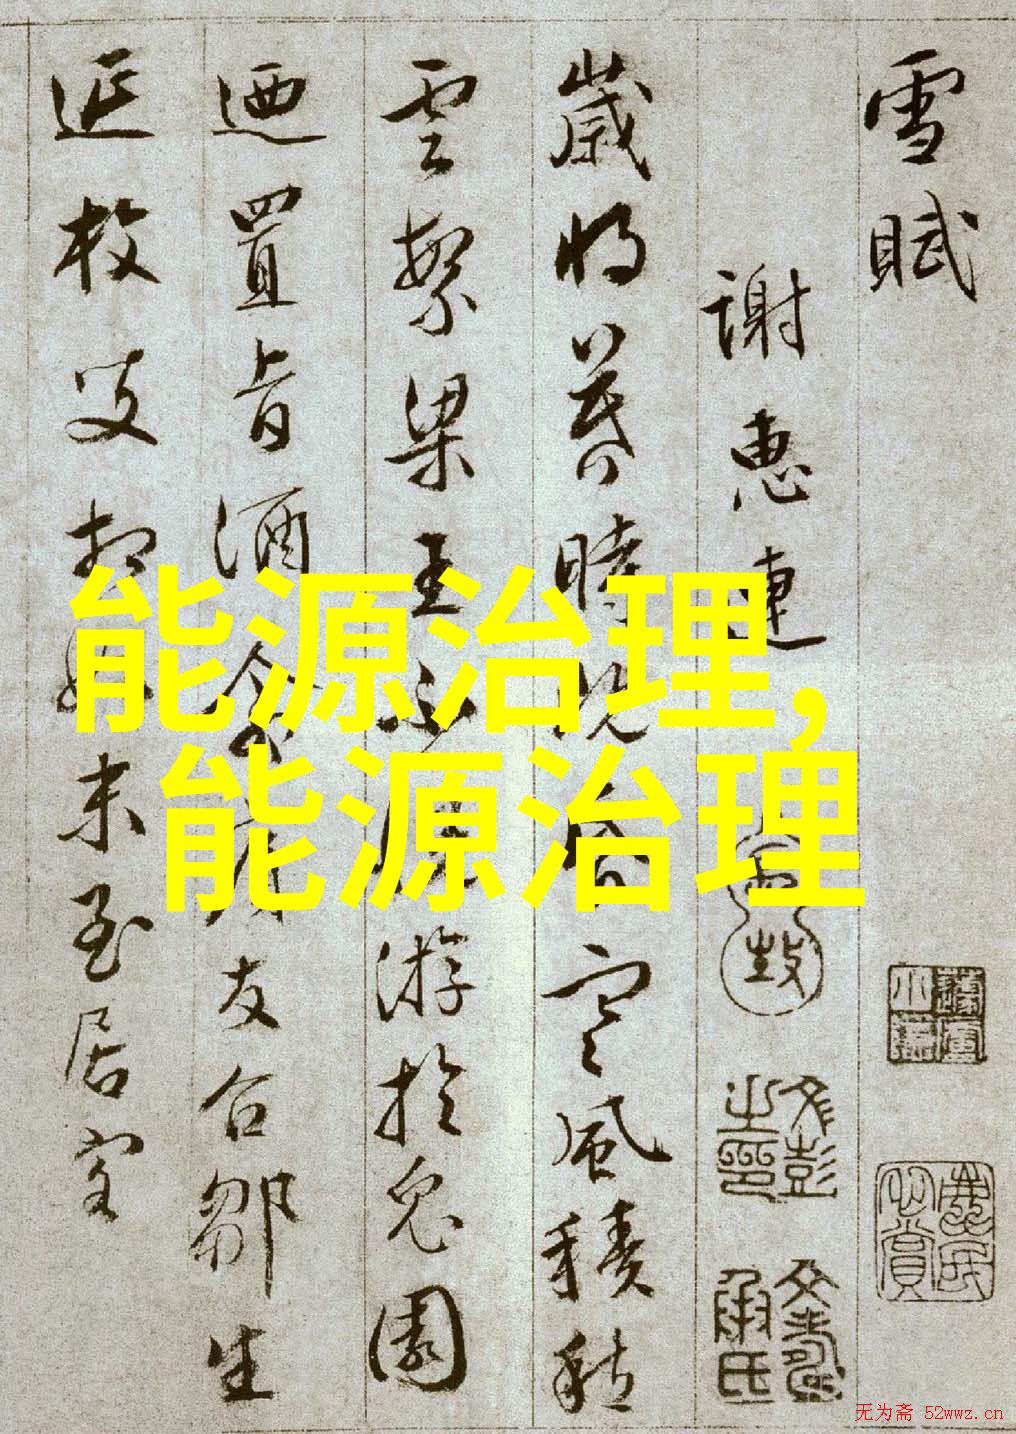 雪賦
謝惠連
歲將暮時既昏寒風積愁
雲繁梁王不悅游於兔園
迺置旨酒命賓友召鄒生
延枚叟相如末至居客
能源治理,
能源治理
文彭之印
文壽承氏
无为斋 52wwz.cn